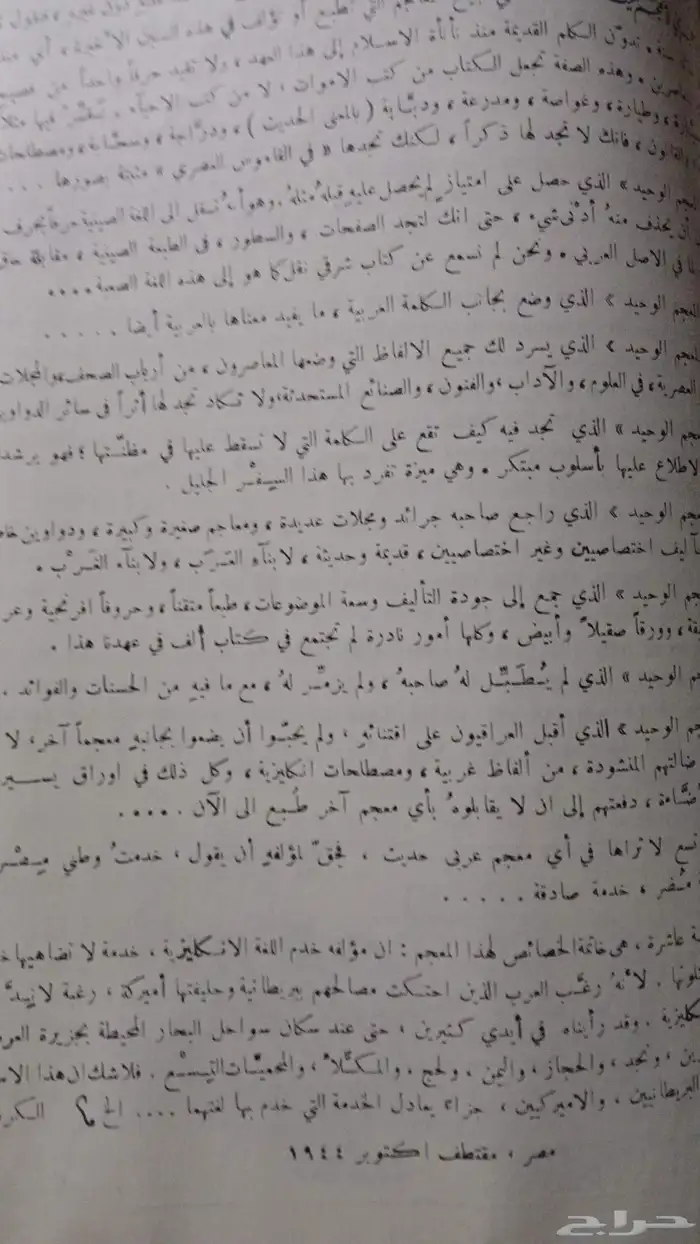 تدوّن الكلم القديمة منذ نأنأة الاسلام إلى هذا العهد، ولا تفيد حرفاً واحداً من
وهذه الصفة تجعل الكتاب من كتب الاموات، لا من كتب الاحياء.
وطيارة، وغواصة، ومدرعة، ودبّابة (بالمعنى الحديث)، ودرّاجة، وسحّابة، ومصطلحات
فانك لا تجد لها ذكراً، لكنك تجدها «في القاموس العصري» مثبتة بصورها ....
الوحيد» الذي حصل على امتياز لم يحصل عليهِ قبلهُ مثلهُ. وهو أنهُ نقل الى اللغة الصينية حرفاً بحرف
يحذف منهُ أدنى شيء، حتى انك لتجد الصفحات، والسطور، في الطبعة الصينية، مقابلة
في الاصل العربي. ونحن لم نسمع عن كتاب شرقي نقل كما هو إلى هذه اللغة الصعبة....
المعجم الوحيد» الذي وضع بجانب الكلمة العربية، ما يفيد معناها بالعربية أيضا .....
المعجم الوحيد» الذي يسرد لك جميع الالفاظ التي وضعها المعاصرون، من أرباب الصحف، والمجلات
العصرية، في العلوم، والآداب، والفنون، والصنائع المستحدثة، ولا تكاد تجد لها أثراً في سائر الدواوين
جم الوحيد» الذي تجد فيه كيف تقع على الكلمة التي لا تسقط عليها في مظنّتها؛ فهو يرشد
لاطلاع عليها بأسلوب مبتكر. وهي ميزة تفرد بها هذا السِفْر الجليل.
جم الوحيد» الذي راجع صاحبه جرائد ومجلات عديدة، ومعاجم صغيرة وكبيرة، ودواوين خا
آليف اختصاصيين وغير اختصاصيين، قديمة وحديثة، لابنآء العَرَب، ولابنآء الغَرْب.
جم الوحيد» الذي جمع إلى جودة التأليف وسعة الموضوعات، طبعاً متقناً، وحروفاً افرنجية وعر
يقة، وورقاً صقيلاً وأبيض، وكلها أمور نادرة لم تجتمع في كتاب أُلف في عهدنا هذا.
م الوحيد» الذي لم يُطَبِّل لهُ صاحبهُ، ولم يزمّر لهُ، مع ما فيهِ من الحسنات والفوائد.
جم الوحيد» الذي أقبل العراقيون على اقتنائهِ، ولم يحبّوا أن يضعوا بجانبهِ معجماً آخر، لا
ضالتهم المنشودة، من ألفاظ غربية، ومصطلحات انكليزية، وكل ذلك في اوراق
دفعتهم إلى ان لا يقابلوهُ بأي معجم آخر طُبع الى الآن.....
تسع لا تراها في أي معجم عربى حديث، فحقّ لمؤلفهِ أن يقول، خدمتُ وطني
خدمة صادقة .....
ة عاشرة، هى خاتمة الخصائص لهذا المعجم: ان مؤلفه خدم اللغة الانكليزية، خدمة لا تضاهيها
لأنهُ رغّب العرب الذين احتكت مصالحهم ببريطانية وحليفتها أميركة، رغبة
كليزية. وقد رأيناه في أيدي كثيرين، حتى عند سكان سواحل البحار المحيطة بجزيرة العرب
ين، ونجد، والحجاز، واليمن، ولحج، والمكلّا، والمحميّات التِسْع. فلا شك ان هذا
البريطانيين، والاميركيين، جزاء يعادل الخدمة التي خدم بها لغتهما .... الخ
مصر، مقتطف اكتوبر ١٩٤٤
حراج